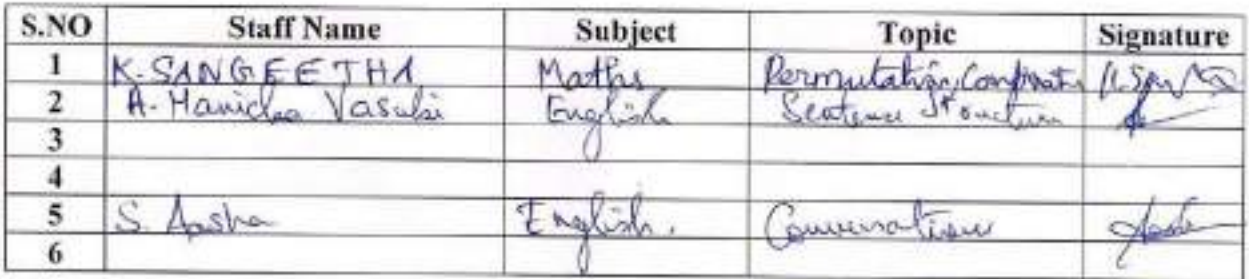 S.NO Staff Name Subject Topic Signature
1 K. SANGEETHA Maths Permutation, Combinatn
2 A. Vasuki English Sentence Structure
3
4
5 S. Aasha English. Conversation
6